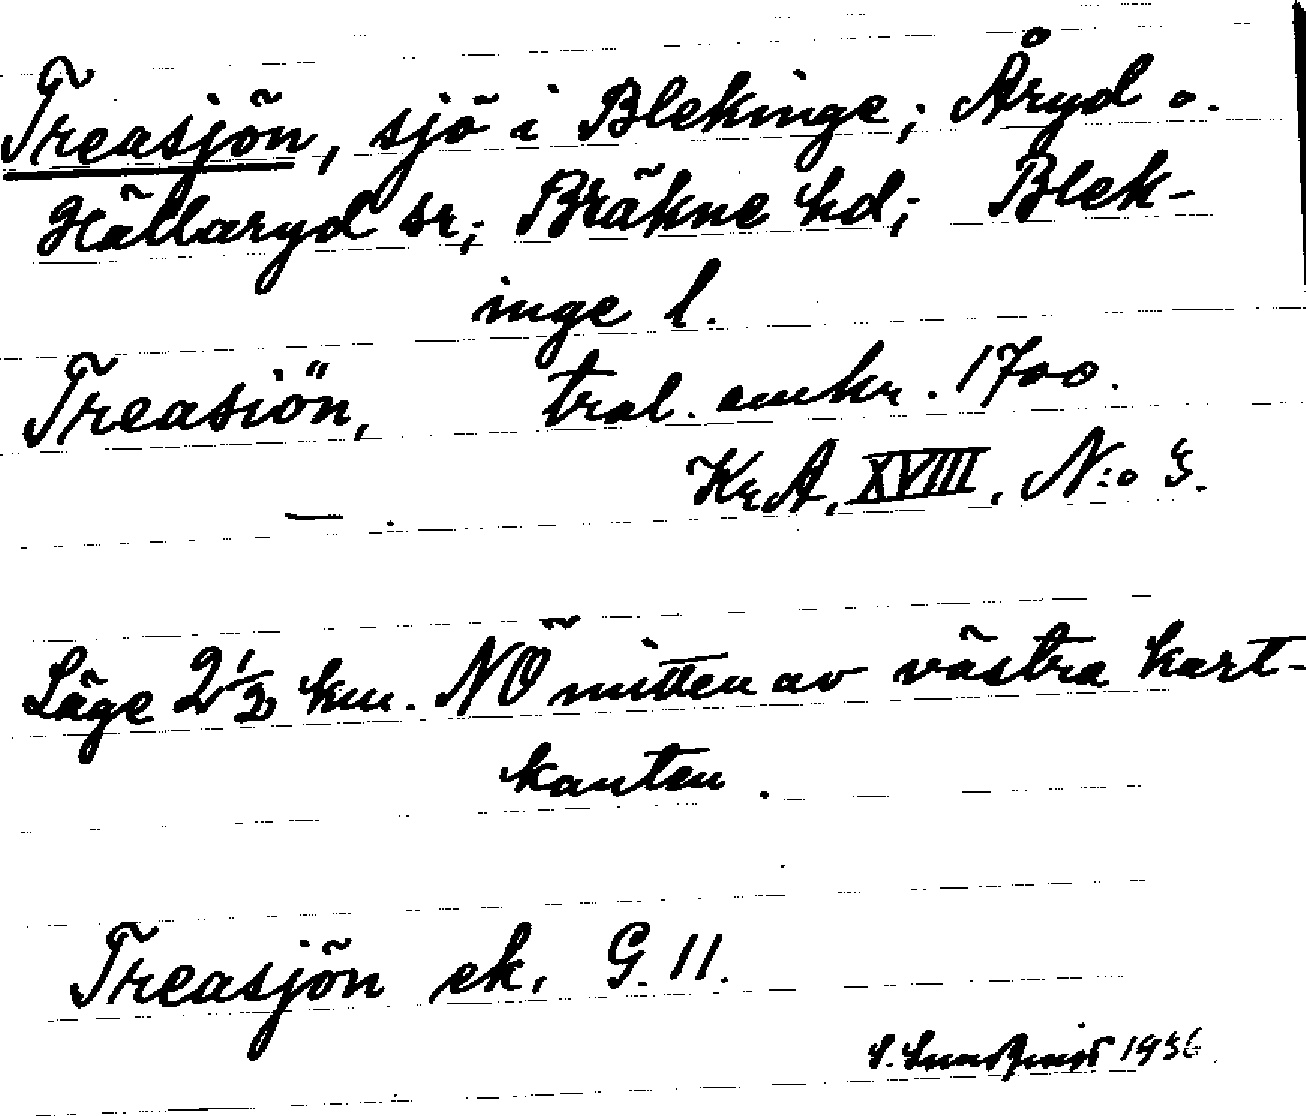 Treasjön, sjö i Blekinge; Åryd o.
Hällaryd sr; Bräkne hd; Blek-
inge l.
Treasiön, trol. omkr. 1700.
KrA, XVIII, N:o 3.
— .
Läge 2 1/2 km. NÖ mitten av västra kart-
kanten.
Treasjön ek. G. 11.
S. Lundqvist 1936